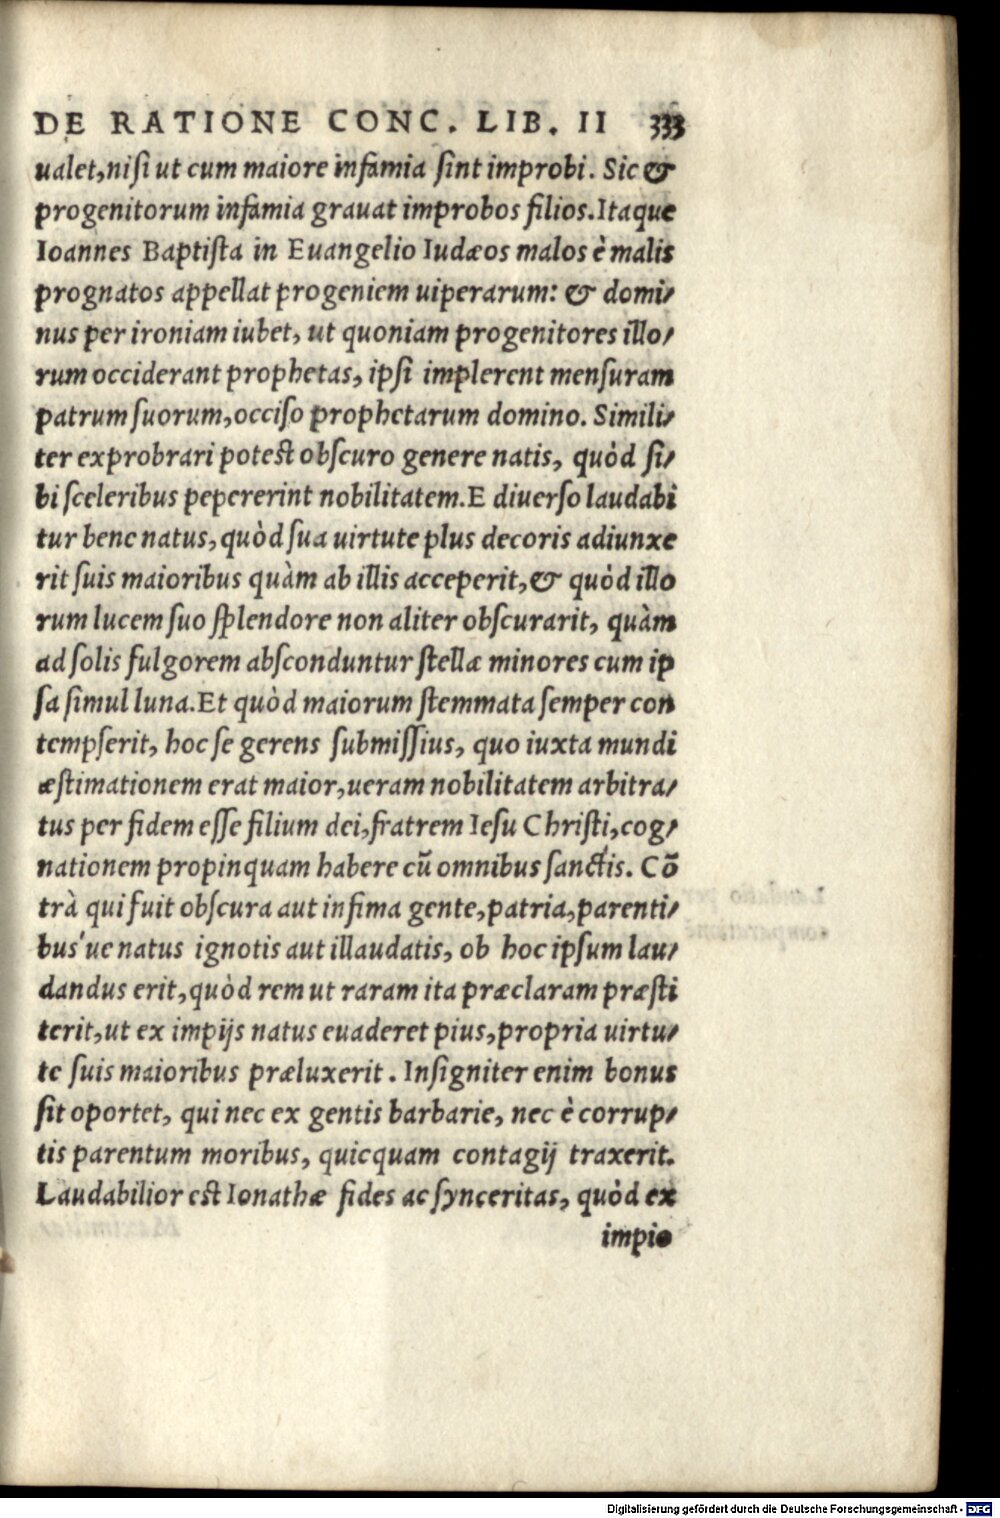 DE RATIONE CONC. LIB. II 333
ualet, nisi ut cum maiore infamia sint improbi. Sic &
progenitorum infamia grauat improbos filios. Itaque
Ioannes Baptista in Euangelio Iudæos malos è malis
prognatos appellat progeniem uiperarum: & domi-
nus per ironiam iubet, ut quoniam progenitores illo-
rum occiderant prophetas, ipsi implerent mensuram
patrum suorum, occiso prophetarum domino. Simili-
ter exprobrari potest obscuro genere natis, quòd si-
bi sceleribus pepererint nobilitatem. E diuerso laudabi
tur bene natus, quòd sua uirtute plus decoris adiunxe
rit suis maioribus quàm ab illis acceperit, & quòd illo
rum lucem suo splendore non aliter obscurarit, quàm
ad solis fulgorem absconduntur stellæ minores cum ip
sa simul luna. Et quòd maiorum stemmata semper con
tempserit, hoc se gerens submissius, quo iuxta mundi
æstimationem erat maior, ueram nobilitatem arbitra-
tus per fidem esse filium dei, fratrem Iesu Christi, cog-
nationem propinquam habere cū omnibus sanctis. Cō
trà qui fuit obscura aut infima gente, patria, parenti-
bus'ue natus ignotis aut illaudatis, ob hoc ipsum lau-
dandus erit, quòd rem ut raram ita præclaram præsti
terit, ut ex impijs natus euaderet pius, propria uirtu-
te suis maioribus præluxerit. Insigniter enim bonus
sit oportet, qui nec ex gentis barbarie, nec è corrup-
tis parentum moribus, quicquam contagij traxerit.
Laudabilior est Ionathæ fides ac synceritas, quòd ex
impio
Digitalisierung gefördert durch die Deutsche Forschungsgemeinschaft - DFG